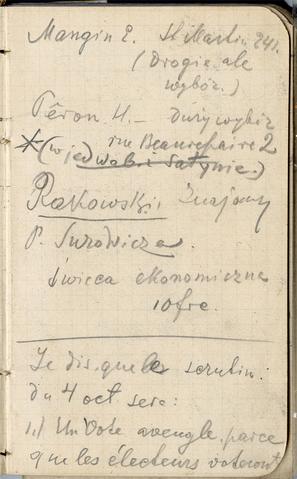 Mangin E. St Martin 241.
(Drogie ale
wybór.)
Péron H. – duży wybór
rue Beaurepaire 2
*(w jed
Rakowski. Znajomy
P. Surowicza.
świeca ekonomiczna
10 frc.
Je dis que le scrutin:
du 4 oct sera:
1.) Un Vote aveugle, parce
que les électeurs voteront